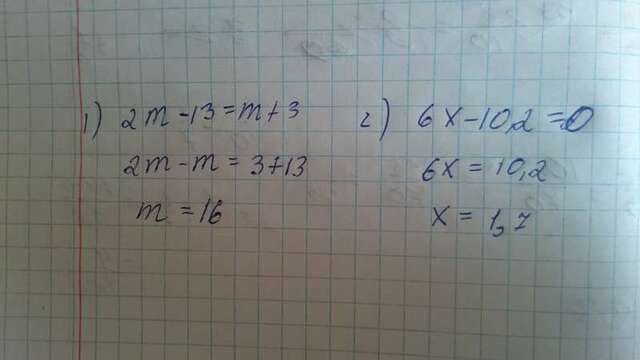 1) 2m - 13 = m + 3
2m - m = 3 + 13
m = 16
2) 6x - 10,2 = 0
6x = 10,2
x = 1,7